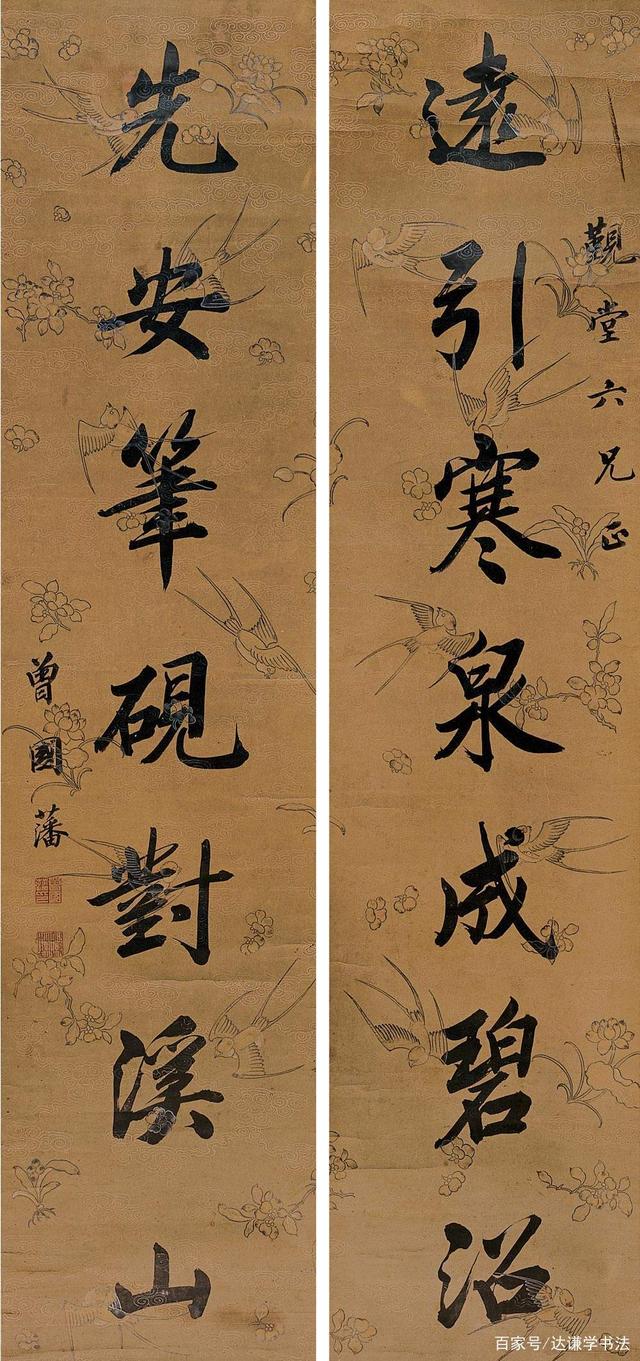 觀堂六兄正
遠引寒泉成碧沼
先安筆硯對溪山
曾國藩
百家号/达谦学书法